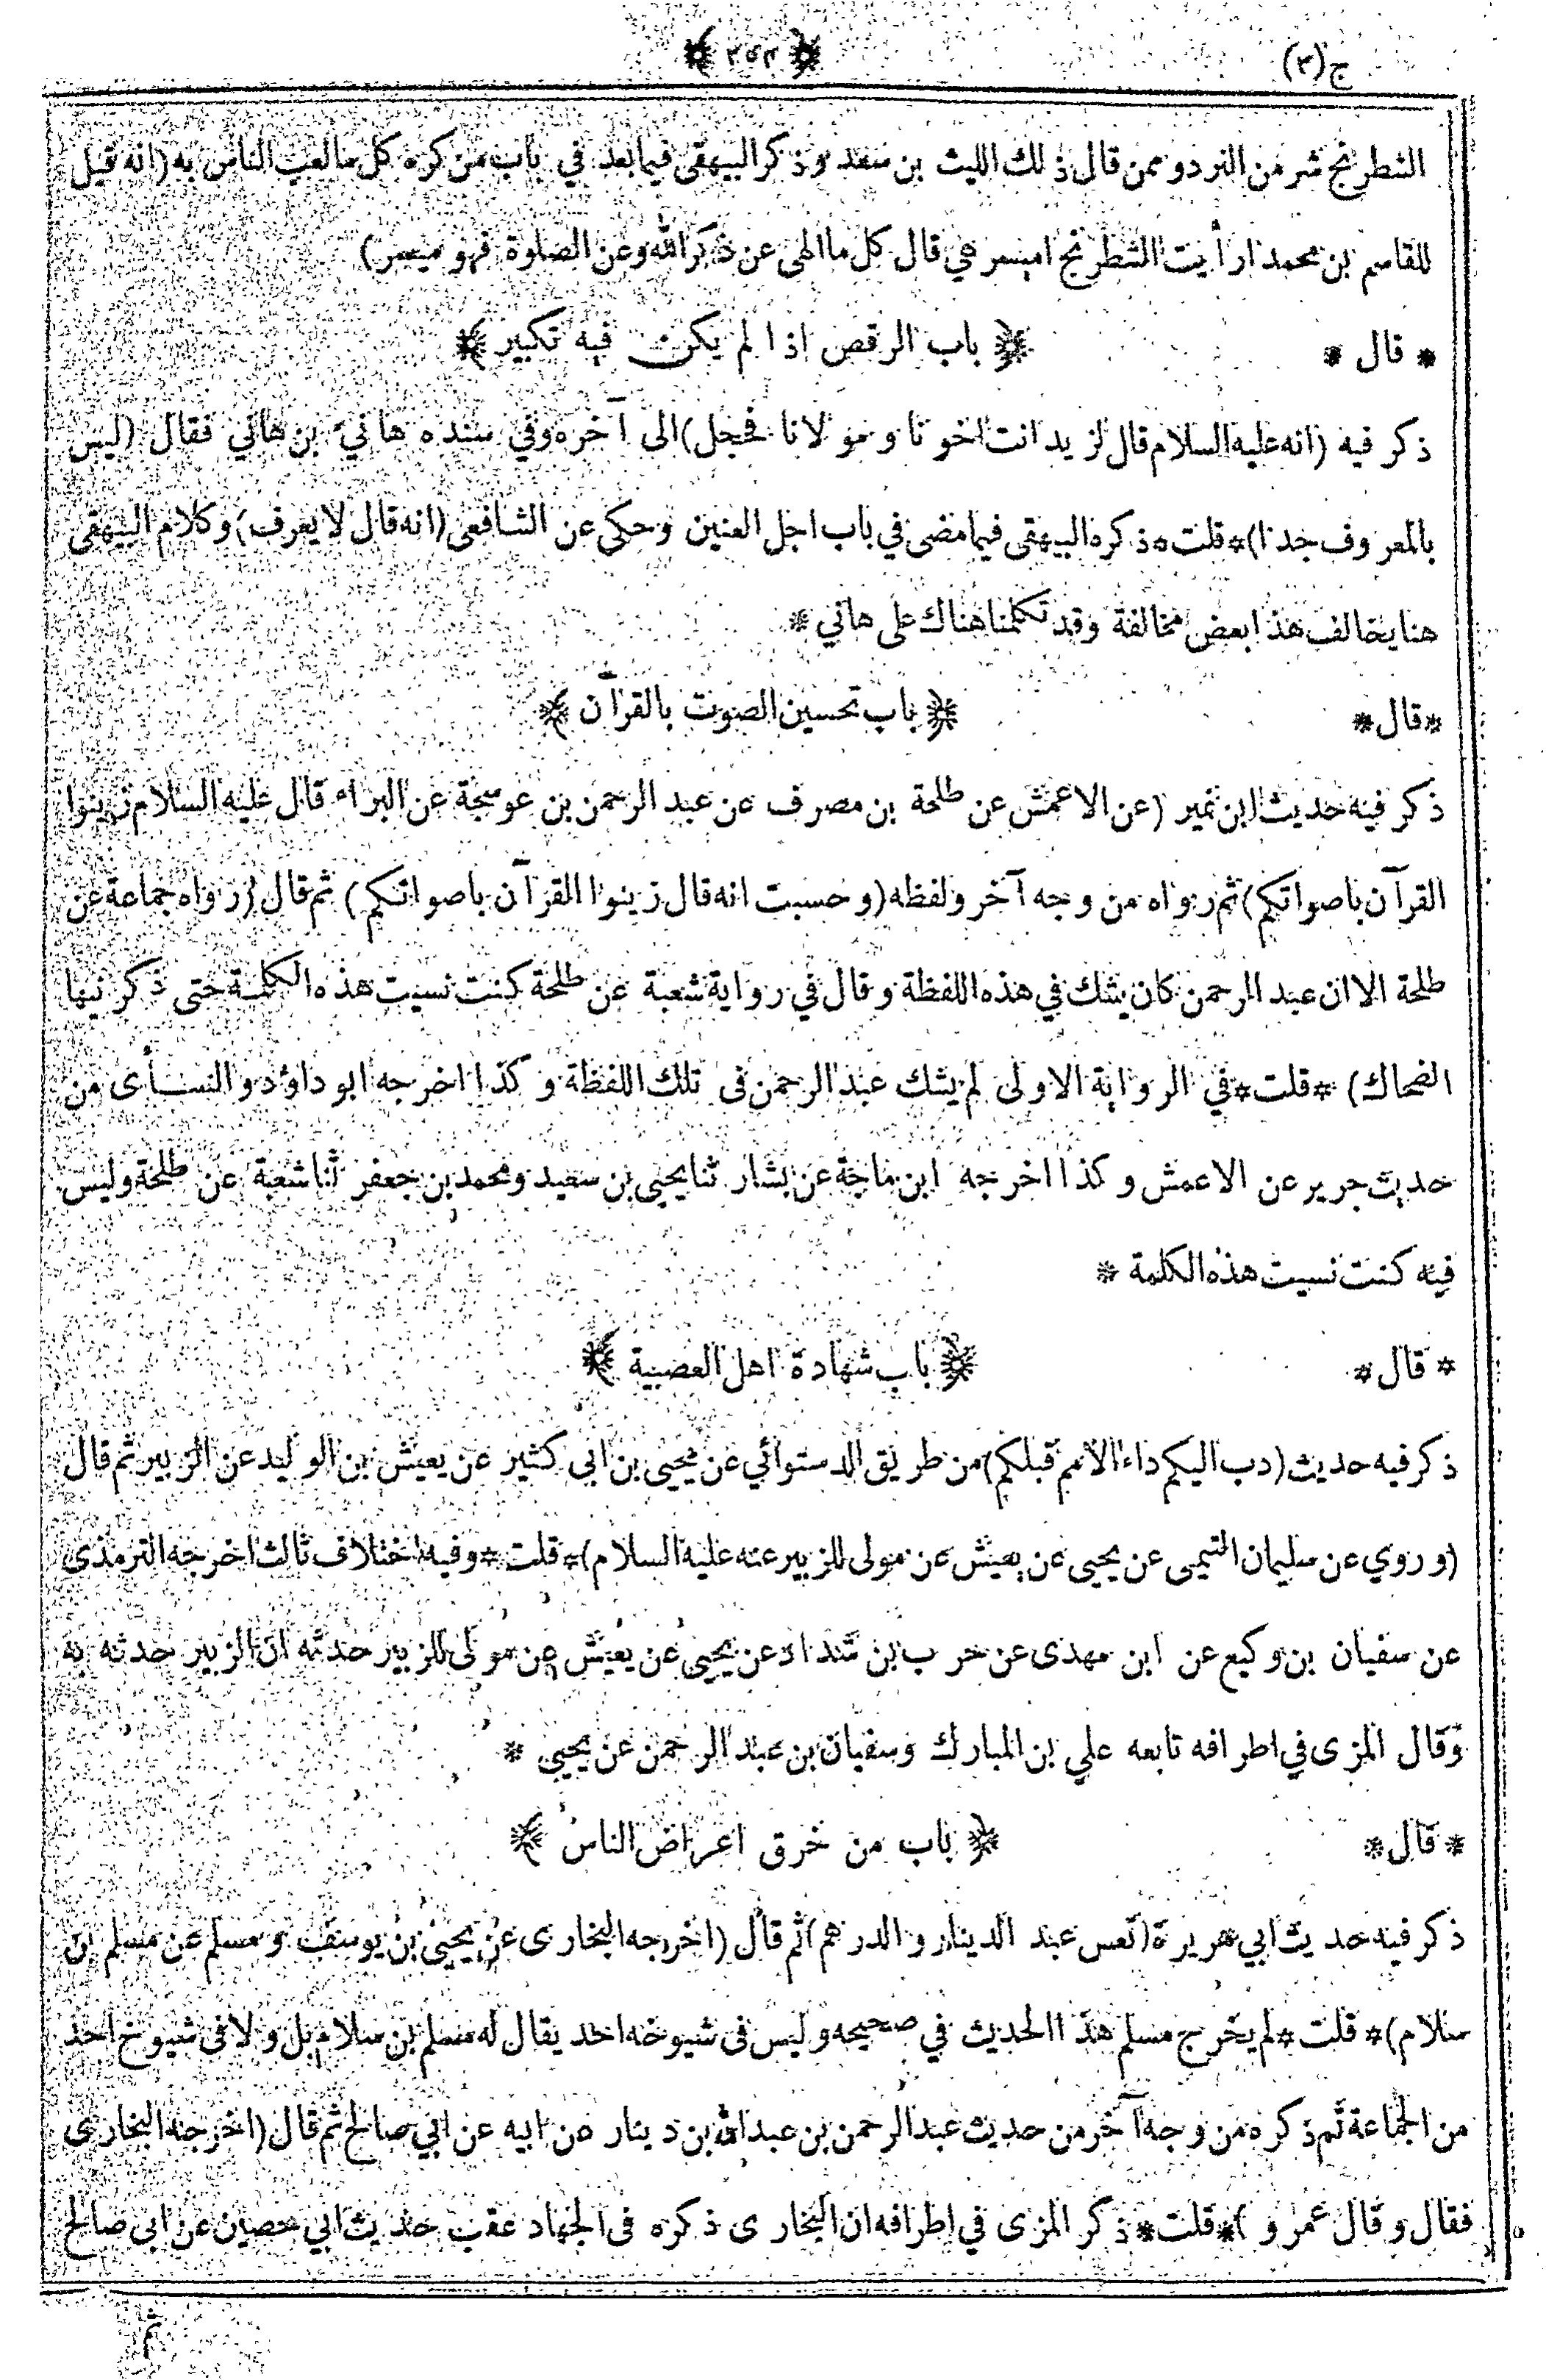 ج (٣)
﴿ ٢٥٢ ﴾
الشطرنج شر من النرد وممن قال ذلك الليث بن سعد وذكر البيهقى فيما بعد في باب من كره كل ما لعب الناس به (انه قيل
للقاسم بن محمد ارأيت الشطرنج اميسر هي قال كل ما الهى عن ذكر الله وعن الصلوة فهو ميسر)
* قال * ﴿ باب الرقص اذا لم يكن فيه تكسير ﴾
ذكر فيه (انه عليه السلام قال لزيد انت اخونا ومولانا فحجل) الى آخره وفي سنده هانيء بن هاني فقال (ليس
بالمعروف جدا) * قلت * ذكره البيهقى فيما مضى في باب اجل العنين وحكى عن الشافعى (انه قال لا يعرف) وكلام البيهقى
هنا يخالف هذا بعض مخالفة وقد تكلمنا هناك على هاني *
* قال * ﴿ باب تحسين الصوت بالقرآن ﴾
ذكر فيه حديث ابن نمير (عن الاعمش عن طلحة بن مصرف عن عبد الرحمن بن عوسجة عن البراء قال عليه السلام زينوا
القرآن باصواتكم) ثم رواه من وجه آخر ولفظه (وحسبت انه قال زينوا القرآن باصواتكم) ثم قال (رواه جماعة عن
طلحة الا ان عبد الرحمن كان يشك في هذه اللفظة وقال في رواية شعبة عن طلحة كنت نسيت هذه الكلمة حتى ذكرنيها
الضحاك) * قلت * في الرواية الاولى لم يشك عبد الرحمن فى تلك اللفظة وكذا اخرجه ابو داؤد والنسأى من
حديث جرير عن الاعمش وكذا اخرجه ابن ماجة عن بشار ثنا يحيى بن سعيد ومحمد بن جعفر ثنا شعبة عن طلحة وليس
فيه كنت نسيت هذه الكلمة *
* قال * ﴿ باب شهادة اهل العصبية ﴾
ذكر فيه حديث (دب اليكم داء الامم قبلكم) من طريق الدستوائي عن يحيى بن ابي كثير عن يعيش بن الوليد عن الزبير ثم قال
(وروي عن سليمان التيمى عن يحيى عن يعيش عن مولى للزبير عنه عليه السلام) * قلت * وفيه اختلاف ثالث اخرجه الترمذى
عن سفيان بن وكيع عن ابن مهدى عن حرب بن شداد عن يحيى عن يعيش عن مولى للزبير حدثه ان الزبير حدثه به
وقال المزى في اطرافه تابعه علي بن المبارك وسفيان بن عبد الرحمن عن يحيى *
* قال * ﴿ باب من خرق اعراض الناس ﴾
ذكر فيه حديث ابي هريرة (تعس عبد الدينار والدرهم) ثم قال (اخرجه البخارى عن يحيى بن يوسف ومسلم عن مسلم بن
سلام) * قلت * لم يخرج مسلم هذا الحديث في صحيحه وليس فى شيوخه احد يقال له مسلم بن سلام بل ولا فى شيوخ احد
من الجماعة ثم ذكره من وجه آخر من حديث عبد الرحمن بن عبد الله بن دينار عن ابيه عن ابي صالح ثم قال (اخرجه البخارى
فقال وقال عمرو) * قلت * ذكر المزى في اطرافه ان البخارى ذكره فى الجهاد عقب حديث ابي حصين عن ابى صالح
ثم